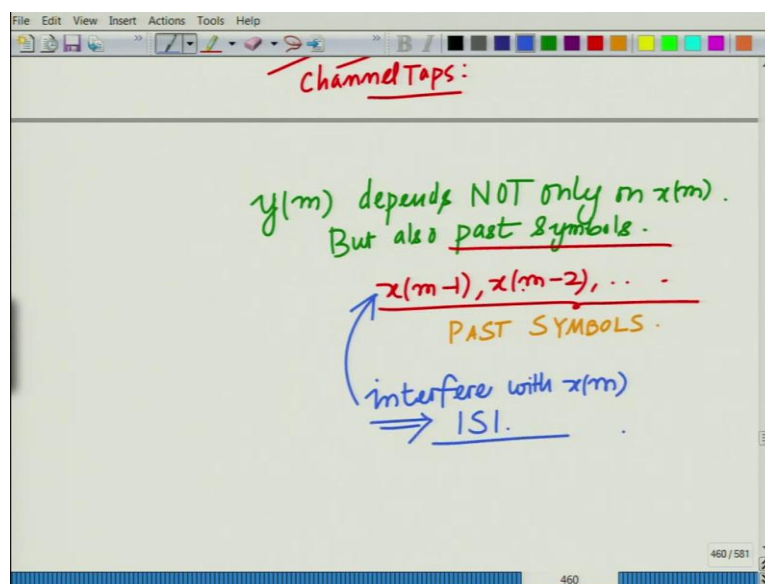 File Edit View Insert Actions Tools Help
B I
Channel Taps:
y(m) depends NOT only on x(m).
But also past symbols.
x(m-1), x(m-2), .. .
PAST SYMBOLS.
interfere with x(m)
⇒ ISI.
460 / 581
460